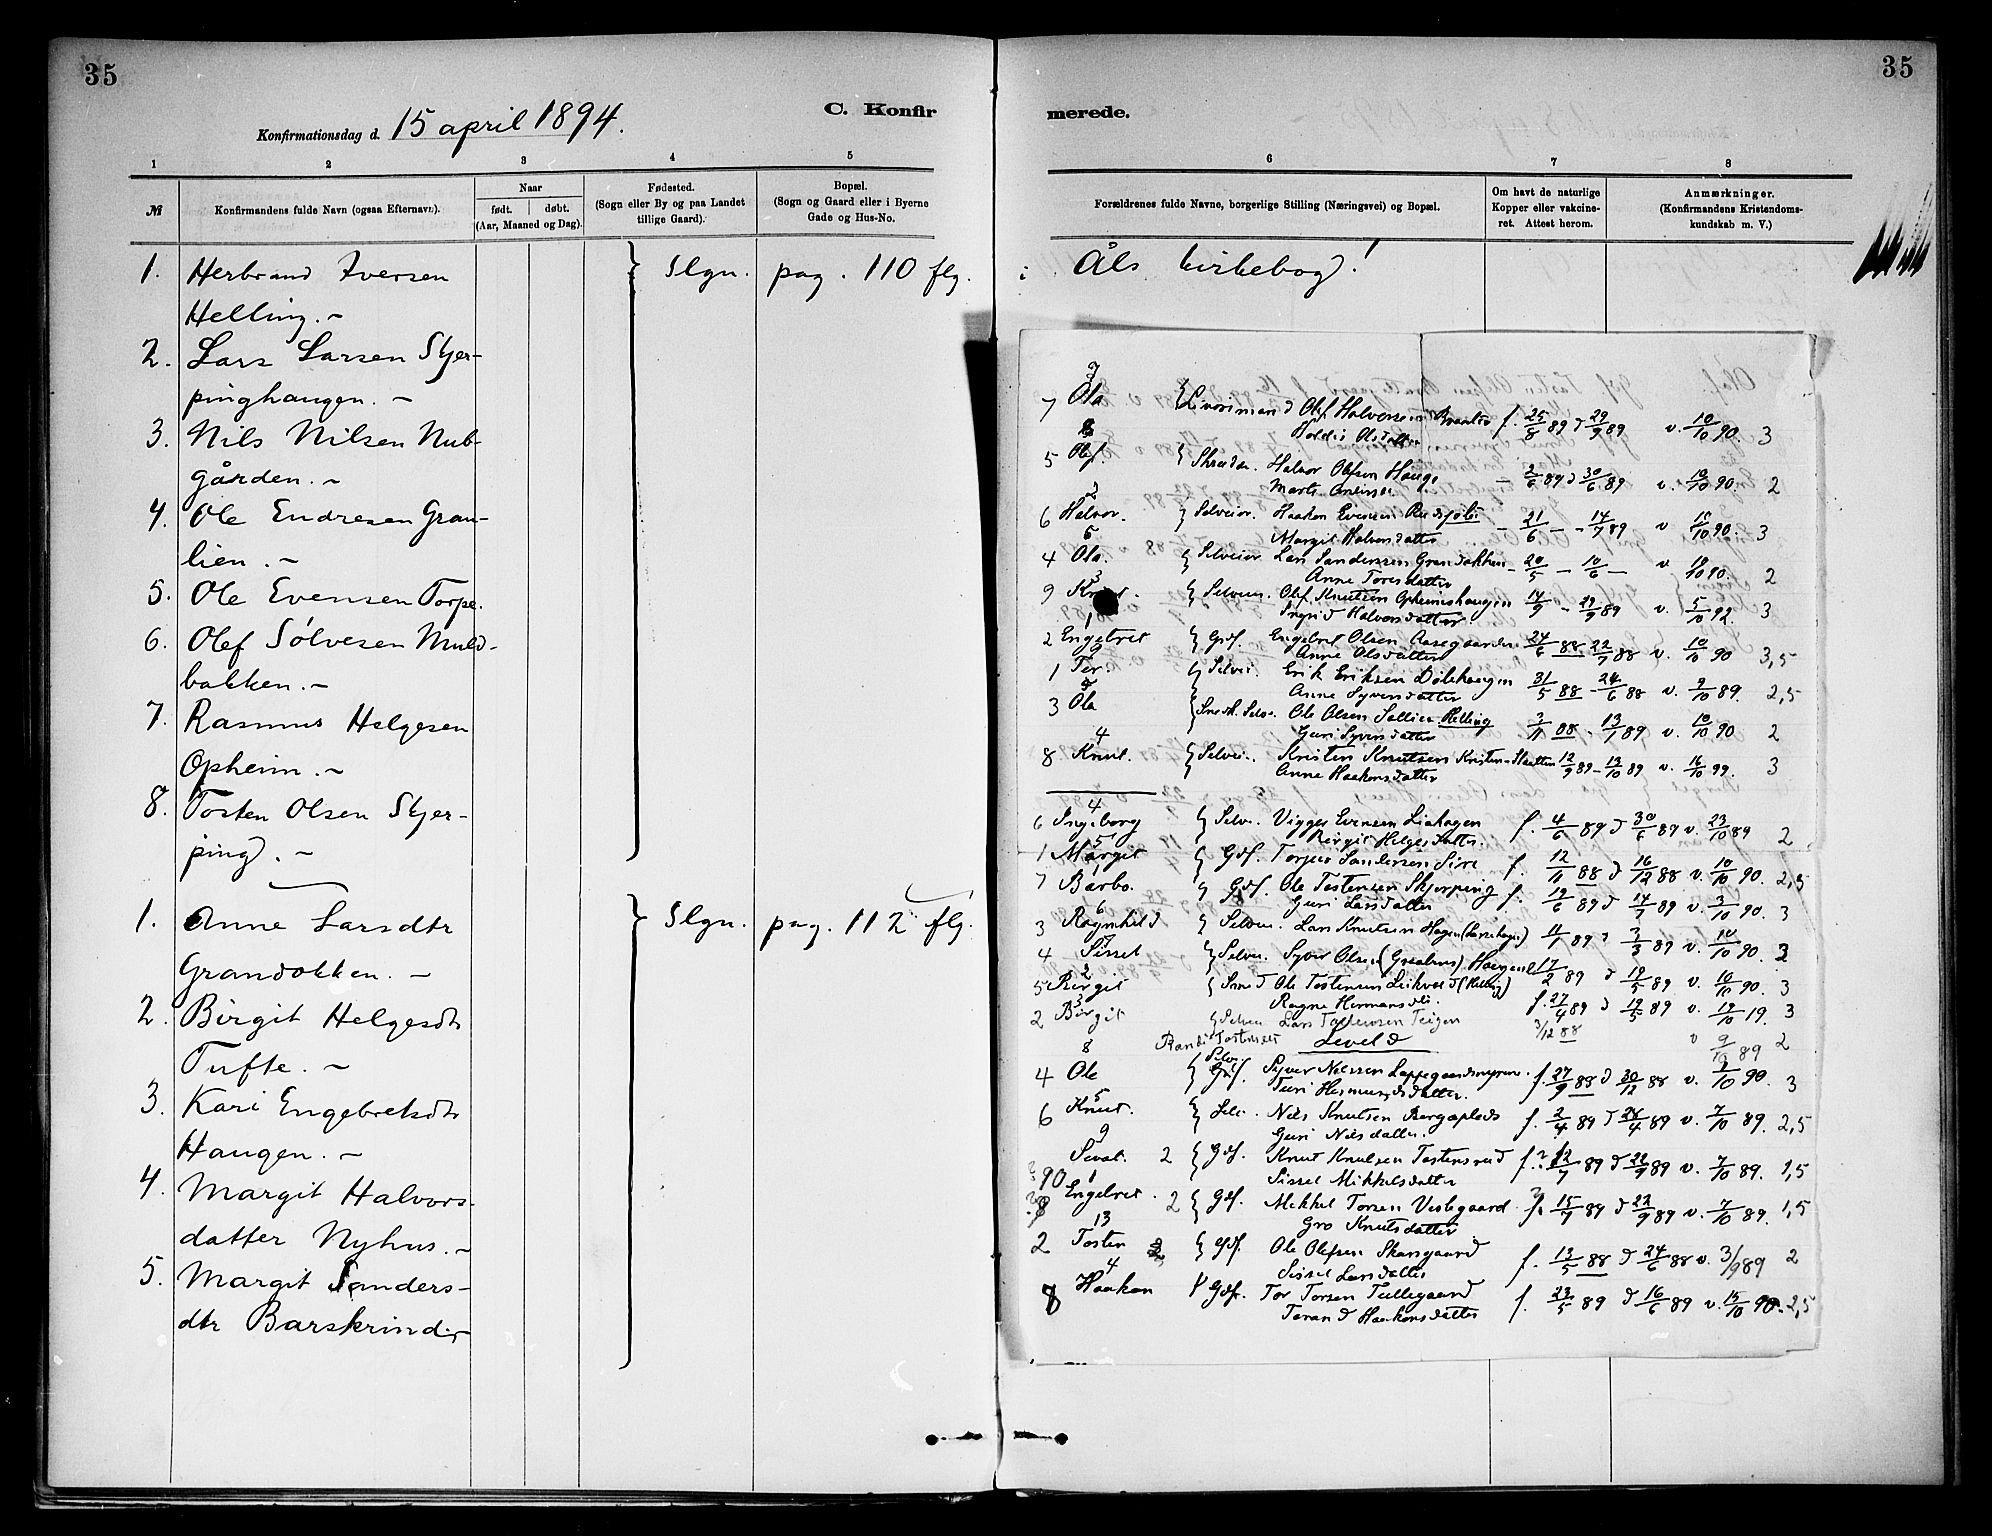 35
C. Konfir
Konfirmationsdag d. 15 april 1894.
1 2 3 4 5
№
Konfirmandens fulde Navn (ogsaa Efternavn).
Naar
født. døbt.
(Aar, Maaned og Dag).
Fødested.
(Sogn eller By og paa Landet
tillige Gaard).
Bopæl.
(Sogn og Gaard eller i Byerne
Gade og Hus-No.
1. Herbrand Iversen Slgn. pag. 110 flg.
Helling. -
2. Lars Larsen Skjer-
pinghaugen. -
3. Nils Nilsen Nub-
gården. -
4. Ole Endresen Gran-
lien. -
5. Ole Evensen Torpe.
6. Olef Sølvesen Muld-
bakken. -
7. Rasmus Helgesen
Opheim. -
8. Tosten Olsen Skjer-
ping. -
1. Anne Larsdtr Slgn. pag. 112 flg.
Grandokken. -
2. Birgit Helgesdtr
Tufte. -
3. Kari Engebretsdtr
Haugen. -
4. Margit Halvors-
datter Nyhus. -
5. Margit Sanders-
dtr Barskrind. -
35
merede.
6 7 8
Forældrenes fulde Navne, borgerlige Stilling (Næringsvei) og Bopæl.
Om havt de naturlige
Kopper eller vakcine-
ret. Attest herom.
Anmærkninger.
(Konfirmandens Kristendoms-
kundskab m. V.)
i Åls kirkebog!
7
7 Ola Olef Halvorsen f. 25/8 89 d 29/9 89 v. 10/10 90. 3
Olsdatter
5 Olef. Halvor Olsen Hauge 2/6 89 d 30/6 89 v. 10/10 90. 2
2
6 Halvor. Selveier. Haaken Evensen - 21/6 - - 14/7 89 v 10/10 90. 3
6 Margit Halvorsdatter
4 Ola. Selveier Lars Sandersen Grandokken - 20/5 - 10/6 - v 10/10 90. 2
3 Anne Toresdatter
9 Selveier. Olef Knutsen Opheimshaugen 14/9 - 29/9 89 v. 5/10 92. 3
1 Ingrid Halvorsdatter.
2 Engebret Gdf. Engebret Olsen Aasegaarden 24/6 88 - 22/7 88 v. 10/10 90 3,5
Anne Olsdatter
1 Tor. Selvei. Erik Eriksen Dølehaugen 31/5 88 - 24/6 88 v. 9/10 89. 2,5
Anne Syversdatter
3 Ola Ole Olsen Helling 3/11 88 - 13/1 89 v. 10/10 90 2
4 Guri Syversdatter
8 Knut. Selvei. Kristen Knutsen 12/9 89 - 13/10 89 v. 16/10 99. 3
Anne Haakensdatter
4
6 Ingeborg Selv. Viggo Evensen Liahagen f. 4/6 89 d 30/6 89 v. 23/10 89 2
5 Birgit Helgesdatter.
1 Margit Gdf. Sandersen f. 12/11 88 d 16/12 88 v. 10/10 90. 2,5
1
7 Barbo. Gdf. Ole Tostensen Skjerping f. 19/6 89 d 14/7 89 v. 3/10 90. 3
6 Guri Larsdatter
3 Ragnhild Selvei. Lars Knutsen Hagen 11/1 89 d 3/3 89 v. 10/10 90. 2
4 Sissel Selvei. Syver Olsen 17/2 89 d 19/5 89 v. 10/10 90. 3
2
5 Birgit Ole Tostensen f. 27/4 89 d 19/5 89 v. 19/10 19. 3
3 Ragne Hermansdtr.
2 Birgit Selvei Lars Tostensen Teigen 3/12 88 v 9/10 89 2
8 Leveld
4 Ole Gdf. Syver Nilssen f. 27/9 88 d 30/12 88 v. 2/10 90. 3
5
6 Knut. Selv. Nils Knutsen f. 2/4 89 d 28/4 89 v. 7/10 89. 2,5
9 Guri Nilsdatter.
Sevat. 2 Gdf. Knut Knutsen f. 12/7 89 d 22/9 89 v. 7/10 89. 1,5
90 1 Sissel Mikkelsdatter
8 Engebret. 2 Gdf. Mikkel Torsen Vestegaard f. 15/7 89 d 22/9 89 v. 7/10 89. 1,5
13 Gro Knutsdatter
2 Tosten Gdf. Ole Olefsen Skarsgaard f. 13/5 88 d 24/6 88 v. 3/9 89 2
4 Sissel Larsdatter
8 Haakon Gdf. Tor Torsen Tullegaard f. 23/5 89 d 16/6 89 v. 15/10 90. 2,5
Torand Haakonsdatter